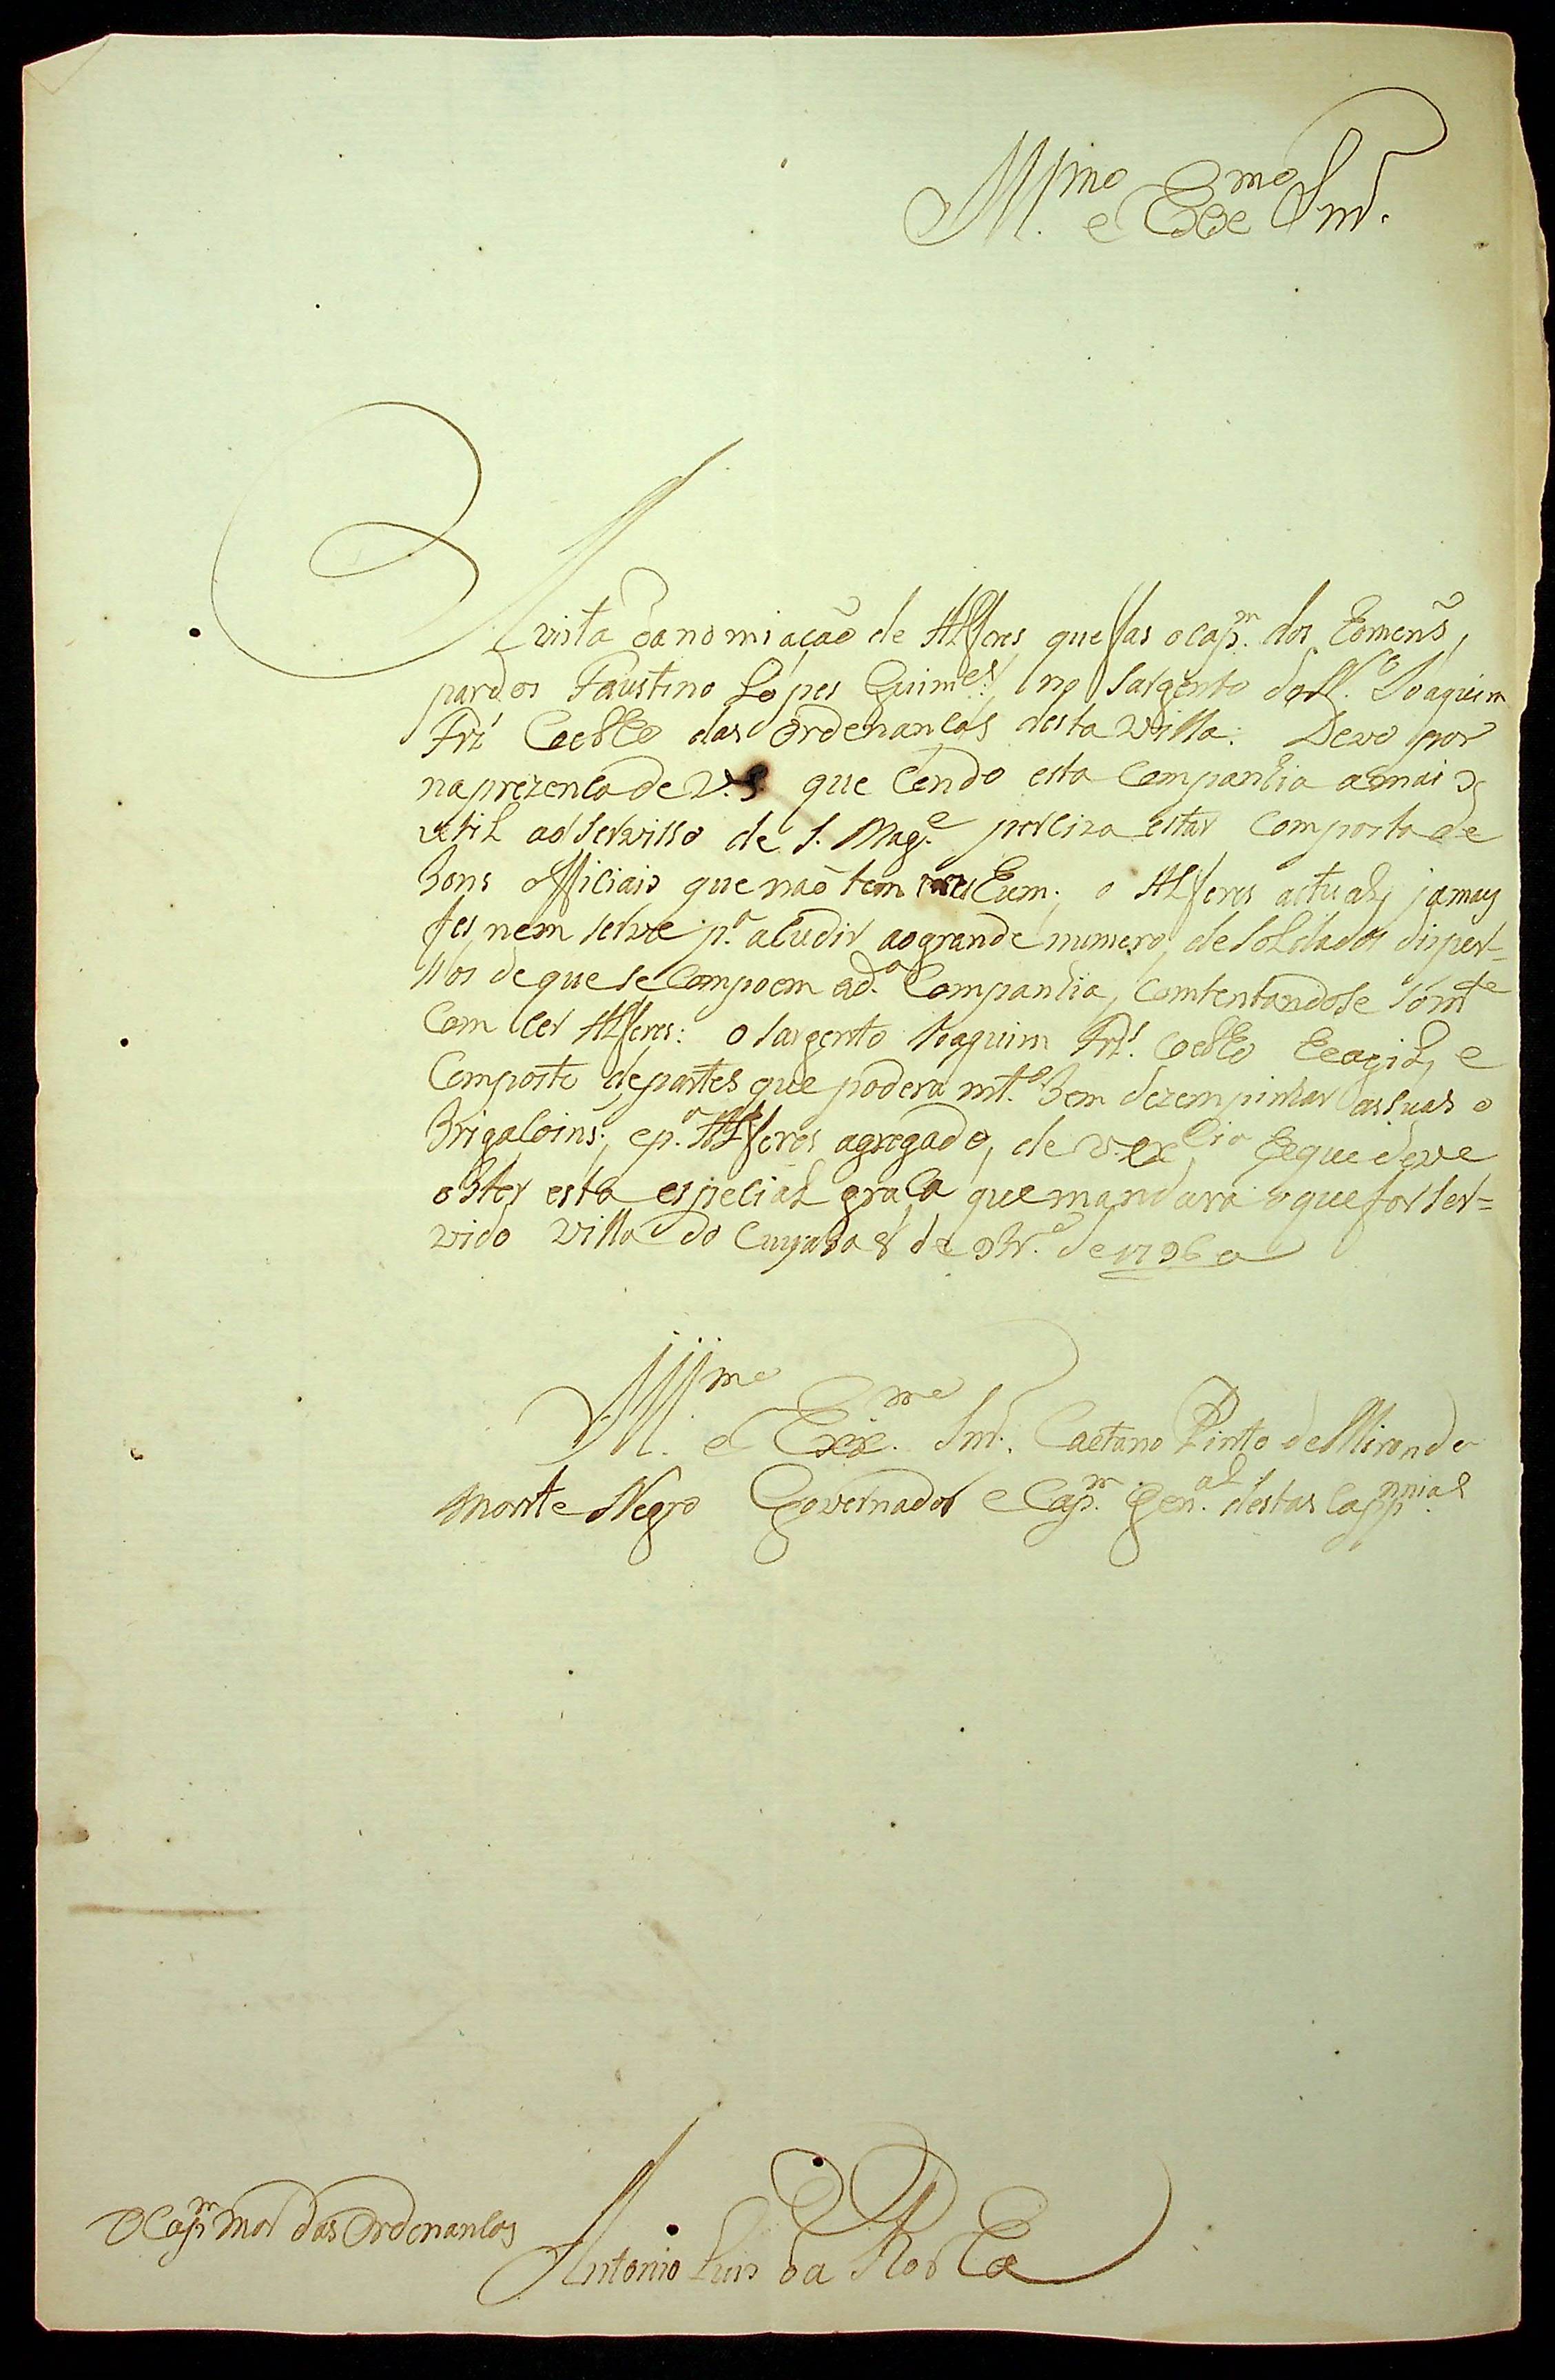 Ill.mo e Exe.mo Snr.
A vista da nomiação de Alferes que fas o cap.m dos homens,
pardos Faustino Lopes Guim.es, no Sargento do N.o Joaquim
Frz Coelho das Ordenancas desta Villa: Devo por
na prezenca de V. S. que cendo esta Companhia a mais
util ao servisso de S. Mag.e perciza estar Composta de
bons officiais que não tem hum; o Alferes actual, jamais
fes nem serve p.a acudir ao grande numero, de Soldados disper-
ssos de que se Compoem a d.a Companhia, Comtentandose sómte
Com cer Alferes: o Sargento Joaquim Frz. Coelho he agil, e
Composto de partes que poderá mt.o bem dezempinhar as suas o
brigacoins; e p.a Alferes agregado, de V. Ex.cia he que deve
obter esta especial graca que mandará o que for ser-
vido Villa do Cuyaba 8 de 9br.o de 1796 a
Ill.mo e Exe.mo Snr. Caetano Pinto de Miranda
Monte Negro Governador e Cap.m Gen.al destas Capp.nias
O Cap.m Mor das Ordenancas
Antonio Luis da Rocha